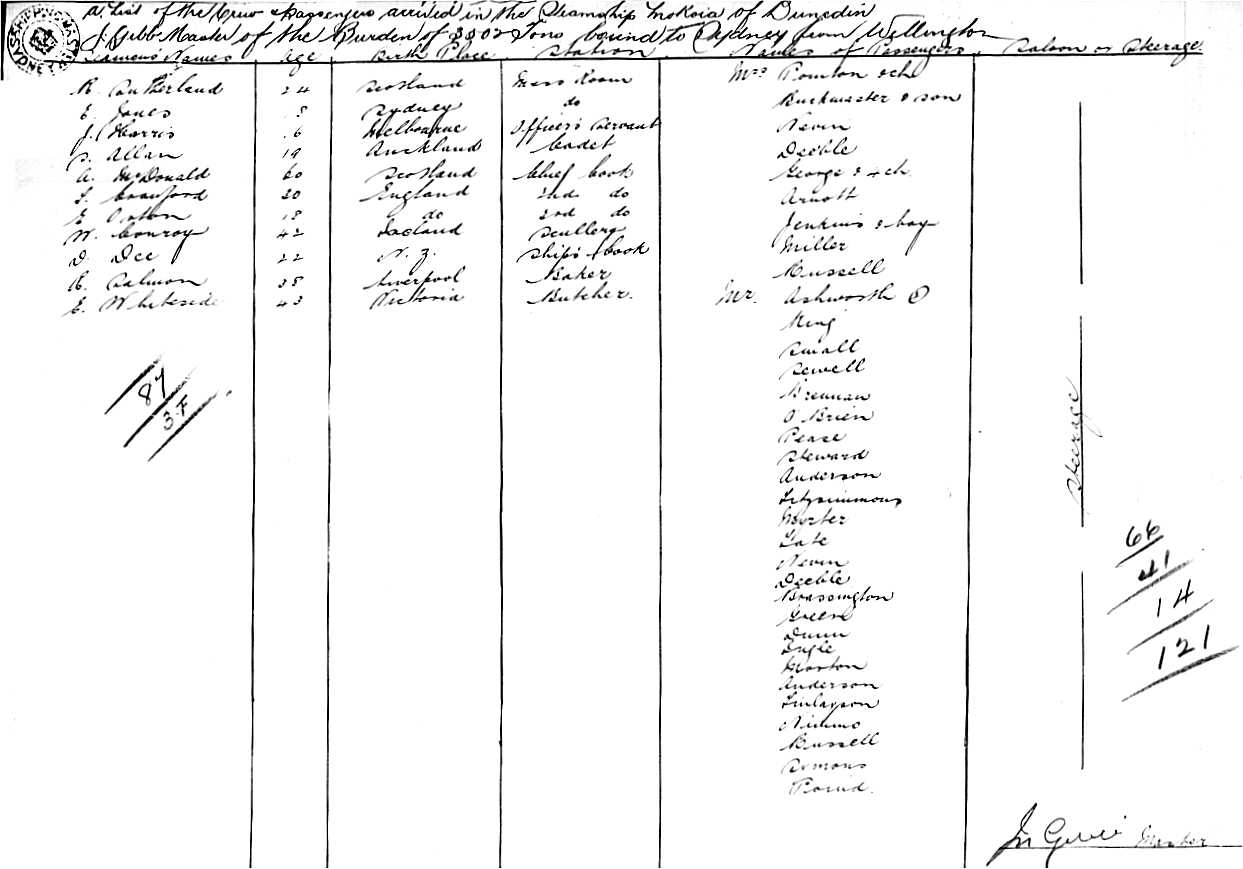 A List of the Crew & Passengers arrived in the Steamship Mokoia of Dunedin
J. Gibb Master of the Burden of 3502 Tons bound to Sydney from Wellington
Seamens Names Age Birth Place Station Names of Passengers Saloon or Steerage
R. Sutherland 24 Scotland Mess Room Mrs
E. Jones Sydney do Buckmaster & son
J. Harris 16 Melbourne Officers Servant Nevin
S. Allan 19 Auckland Cadet Deeble
A. McDonald 60 Scotland Chief Cook George & 4 ch
Crawford England 2nd do Arnott
E. Orton 18 do 3rd do Jenkins & boy
W. Conroy Scullery Miller
D. Dee 22 N.Z. Ship's Cook Russell
R. Salmon 28 Liverpool Baker Mr. Ashworth
E. Whiteside 43 Victoria Butcher. King
Small
Sewell
Brennan
O'Brien
Pease
Steward
Anderson
Fitzsimmons
Morter
Tate
Nevin
Deeble
Brassington
Green
Dunn
Ingle
Morton
Anderson
Finlayson
Nimmo
Bussell
Symons
Steerage
87
3 F
66
41
14
121
Master